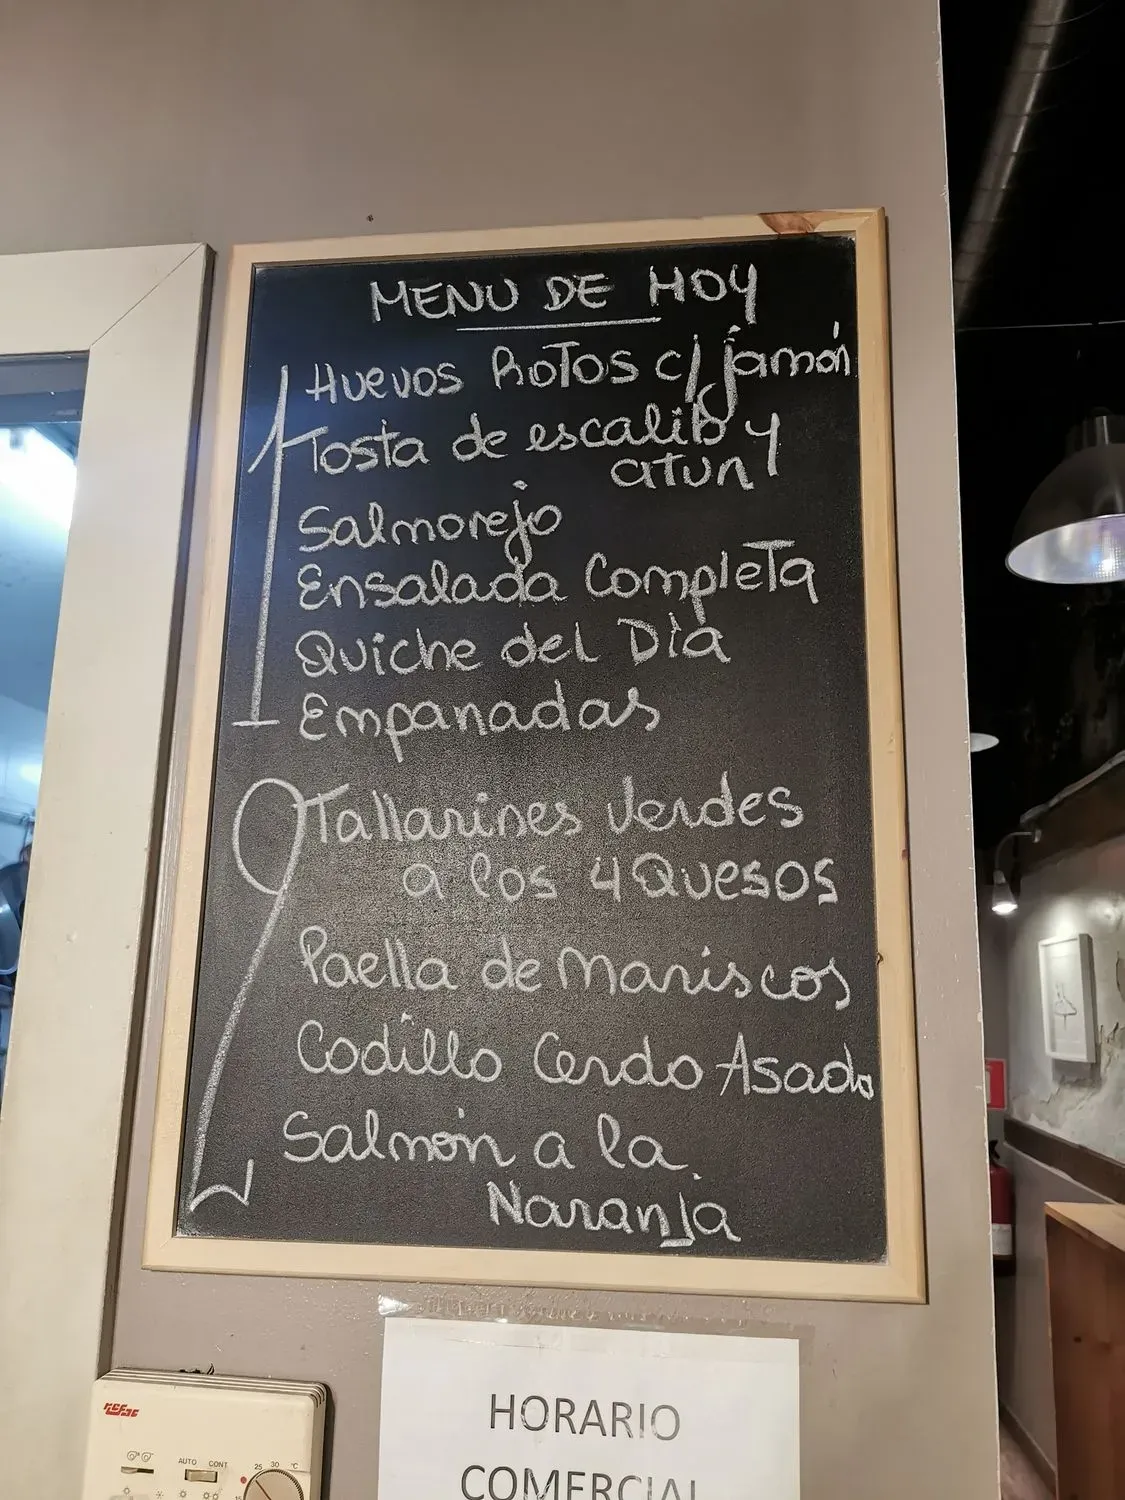 MENU DE HOY
1
Huevos Rotos c/ jamón
Tosta de escalib y
atun
Salmorejo
Ensalada Completa
Quiche del Día
Empanadas
2
Tallarines Verdes
a los 4 Quesos
Paella de Mariscos
Codillo Cerdo Asado
Salmón a la
Naranja
HORARIO
COMERCIAL
AUTO CONT
25 30 °C
15